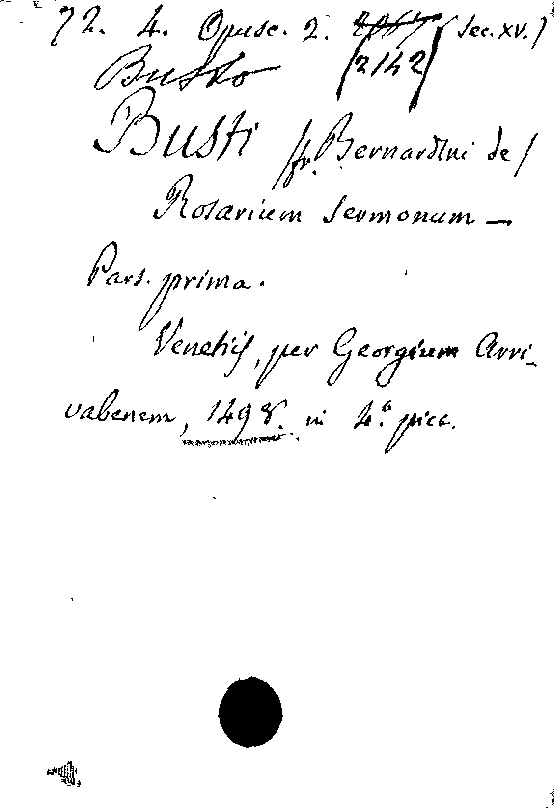 72. 4. Opusc. 2. (sec. XV.)
Busto (2142)
Busti (fr. Bernardini de)
Rosarium Sermonum —
Pars. prima.
Venetiis, per Georgium Arri-
vabenem, 1498. in 4.º picc.